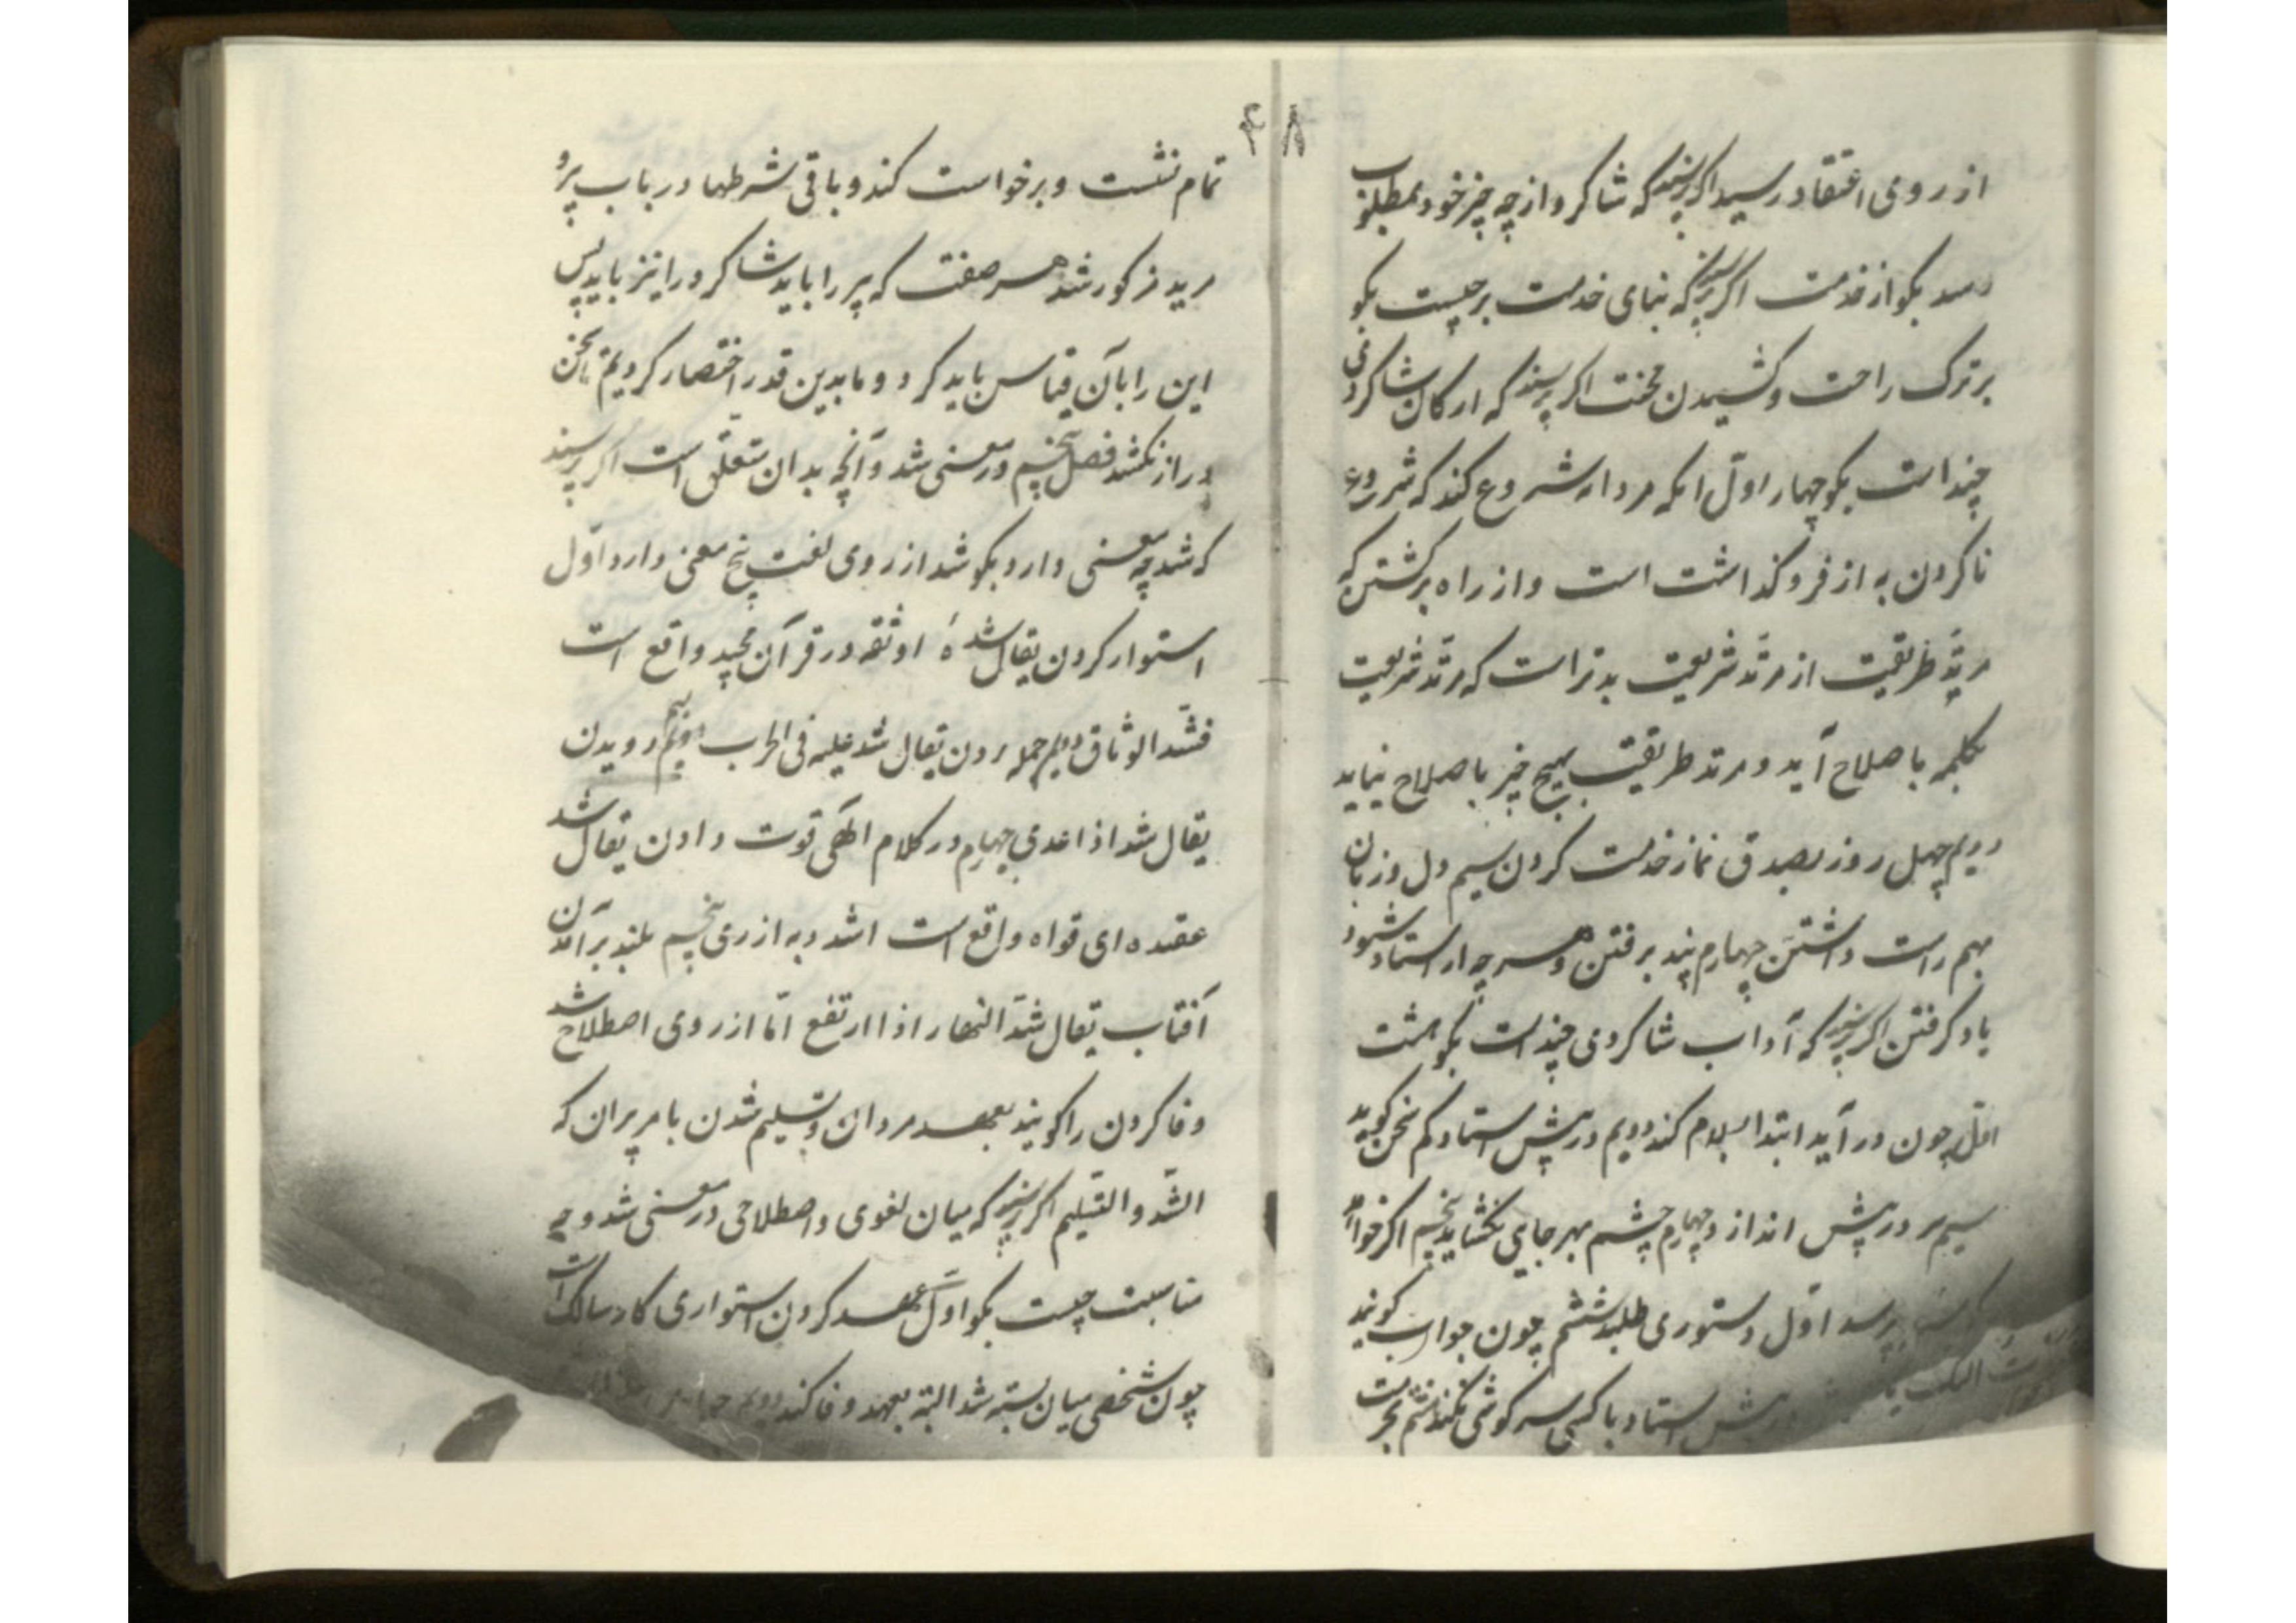 ۴۸
از روی اعتقاد رسید اگر پرسند که شاگرد از چه چیز خود بمطلوب
رسد بگو از خدمت اگر پرسند که بنای خدمت بر چیست بگو
بر ترک راحت و کشیدن محنت اگر پرسند که ارکان شاگردی
چند است بگو چهار اول انکه مردانه شروع کند که شروع
ناکردن به از فروگذاشت است و از راه برگشتن که
مرتد طریقت از مرتد شریعت بدتر است که مرتد شریعت
بکلمه باصلاح آید و مرتد طریقت بهیچ چیز باصلاح نیاید
دویم چهل روز بصدق نماز خدمت کردن سیم دل و زبان
بهم راست داشتن چهارم پند برفتن و هر چه از استاد شنود
یاد گرفتن اگر پرسند که آداب شاگردی چند است بگو هشت
اول چون در آید ابتدا سلام کند دویم در پیش استاد کم سخن گوید
سیم سر در پیش انداز و چهارم چشم بهر جایی نگشاید پنجم اگر خواهد
پرسد اول دستوری طلبد ششم چون جواب گویند
پیش استاد با کسی سرگوشی نکند هشتم بحرمت
تمام نشست و برخواست کند و باقی شرطها در باب پیر و
مرید مذکور شد هر صفت که پیر را باید شاگرد را نیز باید پس
این را بآن قیاس باید کرد و ما بدین قدر اختصار کردیم تا سخن
دراز نکشد فصل پنجم در معنی شد و آنچه بدان متعلق است اگر پرسند
که شد چه معنی دارد بگو شد از روی لغت پنج معنی دارد اول
استوار کردن یقال شده اوثقه در قرآن مجید واقع است
فشد الوثاق دویم حمله بردن یقال شد علیه فی الحرب سیم دویدن
یقال شد اذا عدی چهارم در کلام الهی قوت دادن یقال شد
عقده ای قواه واقع است اشدد به ازری پنجم بلند برآمدن
آفتاب یقال شد النهار اذا ارتفع اما از روی اصطلاح شد
وفا کردن را گویند بعهد مردان و تسلیم شدن با مر پیران که
الشد والتسلیم اگر پرسند که میان لغوی و اصطلاحی در معنی شد وجه
مناسبت چیست بگو اول عهد کردن استواری کار سالک است
چون شخصی میان بسته شد البته بعهد وفا کند دویم